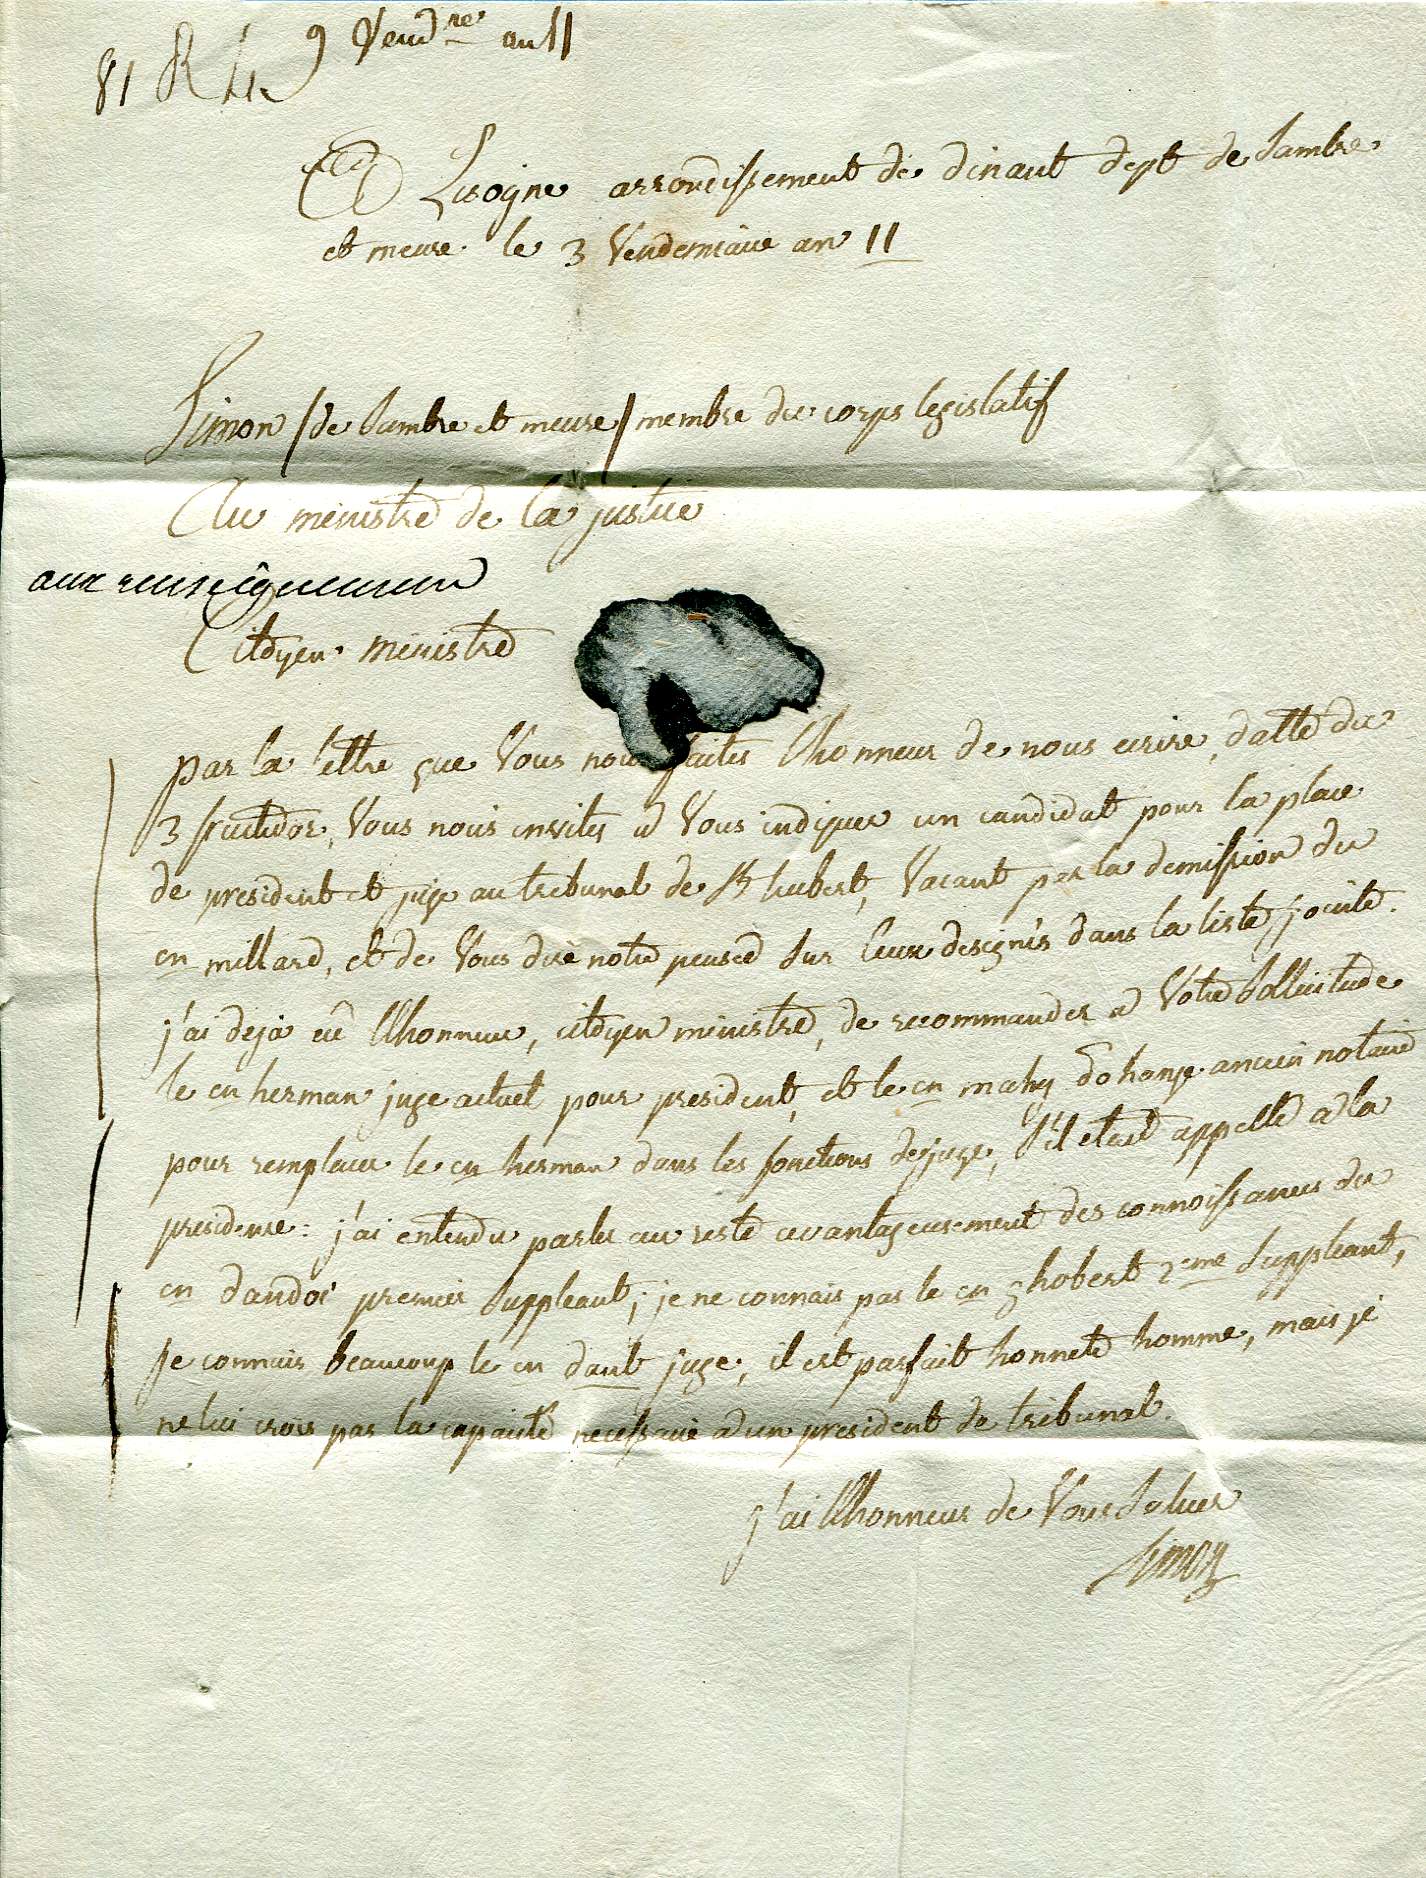 81 R 4 9 Vend.re an 11
a Lisogne arrondissement de dinant dept de Sambre
et meuse le 3 Vendemiaire an 11
Simon / de Sambre et meuse / membre du corps legislatif
Au ministre de la justice
aux renseignemens
Citoyen ministre
par la lettre que Vous nous faites lhonneur de nous ecrire, datté du
3 fructidor, Vous nous invités a Vous indiquer un candidat pour la place
de president et juge au tribunal de St hubert, Vacant par la demission du
cn millard, et de Vous dire notre pensée Sur Ceux designés dans la liste jointe.
j'ai deja eû lhonneur, citoyen ministre, de recommander a Votre Sollicitude
le cn herman juge actuel pour president, et le cn mahy ancien notaire
pour remplacer le cn herman dans les fonctions de juge, S'il etait appellé a la
presidence : j'ai entendu parler au reste avantageusement des connoissances du
cn dandoi premier Suppleant ; je ne connais pas le cn 2eme Suppleant,
Je connais beaucoup le cn dault juge, il est parfait honnete homme, mais je
ne lui crois pas la capacité necessaire a un president de tribunal.
j'ai lhonneur de Vous Saluer
Simon